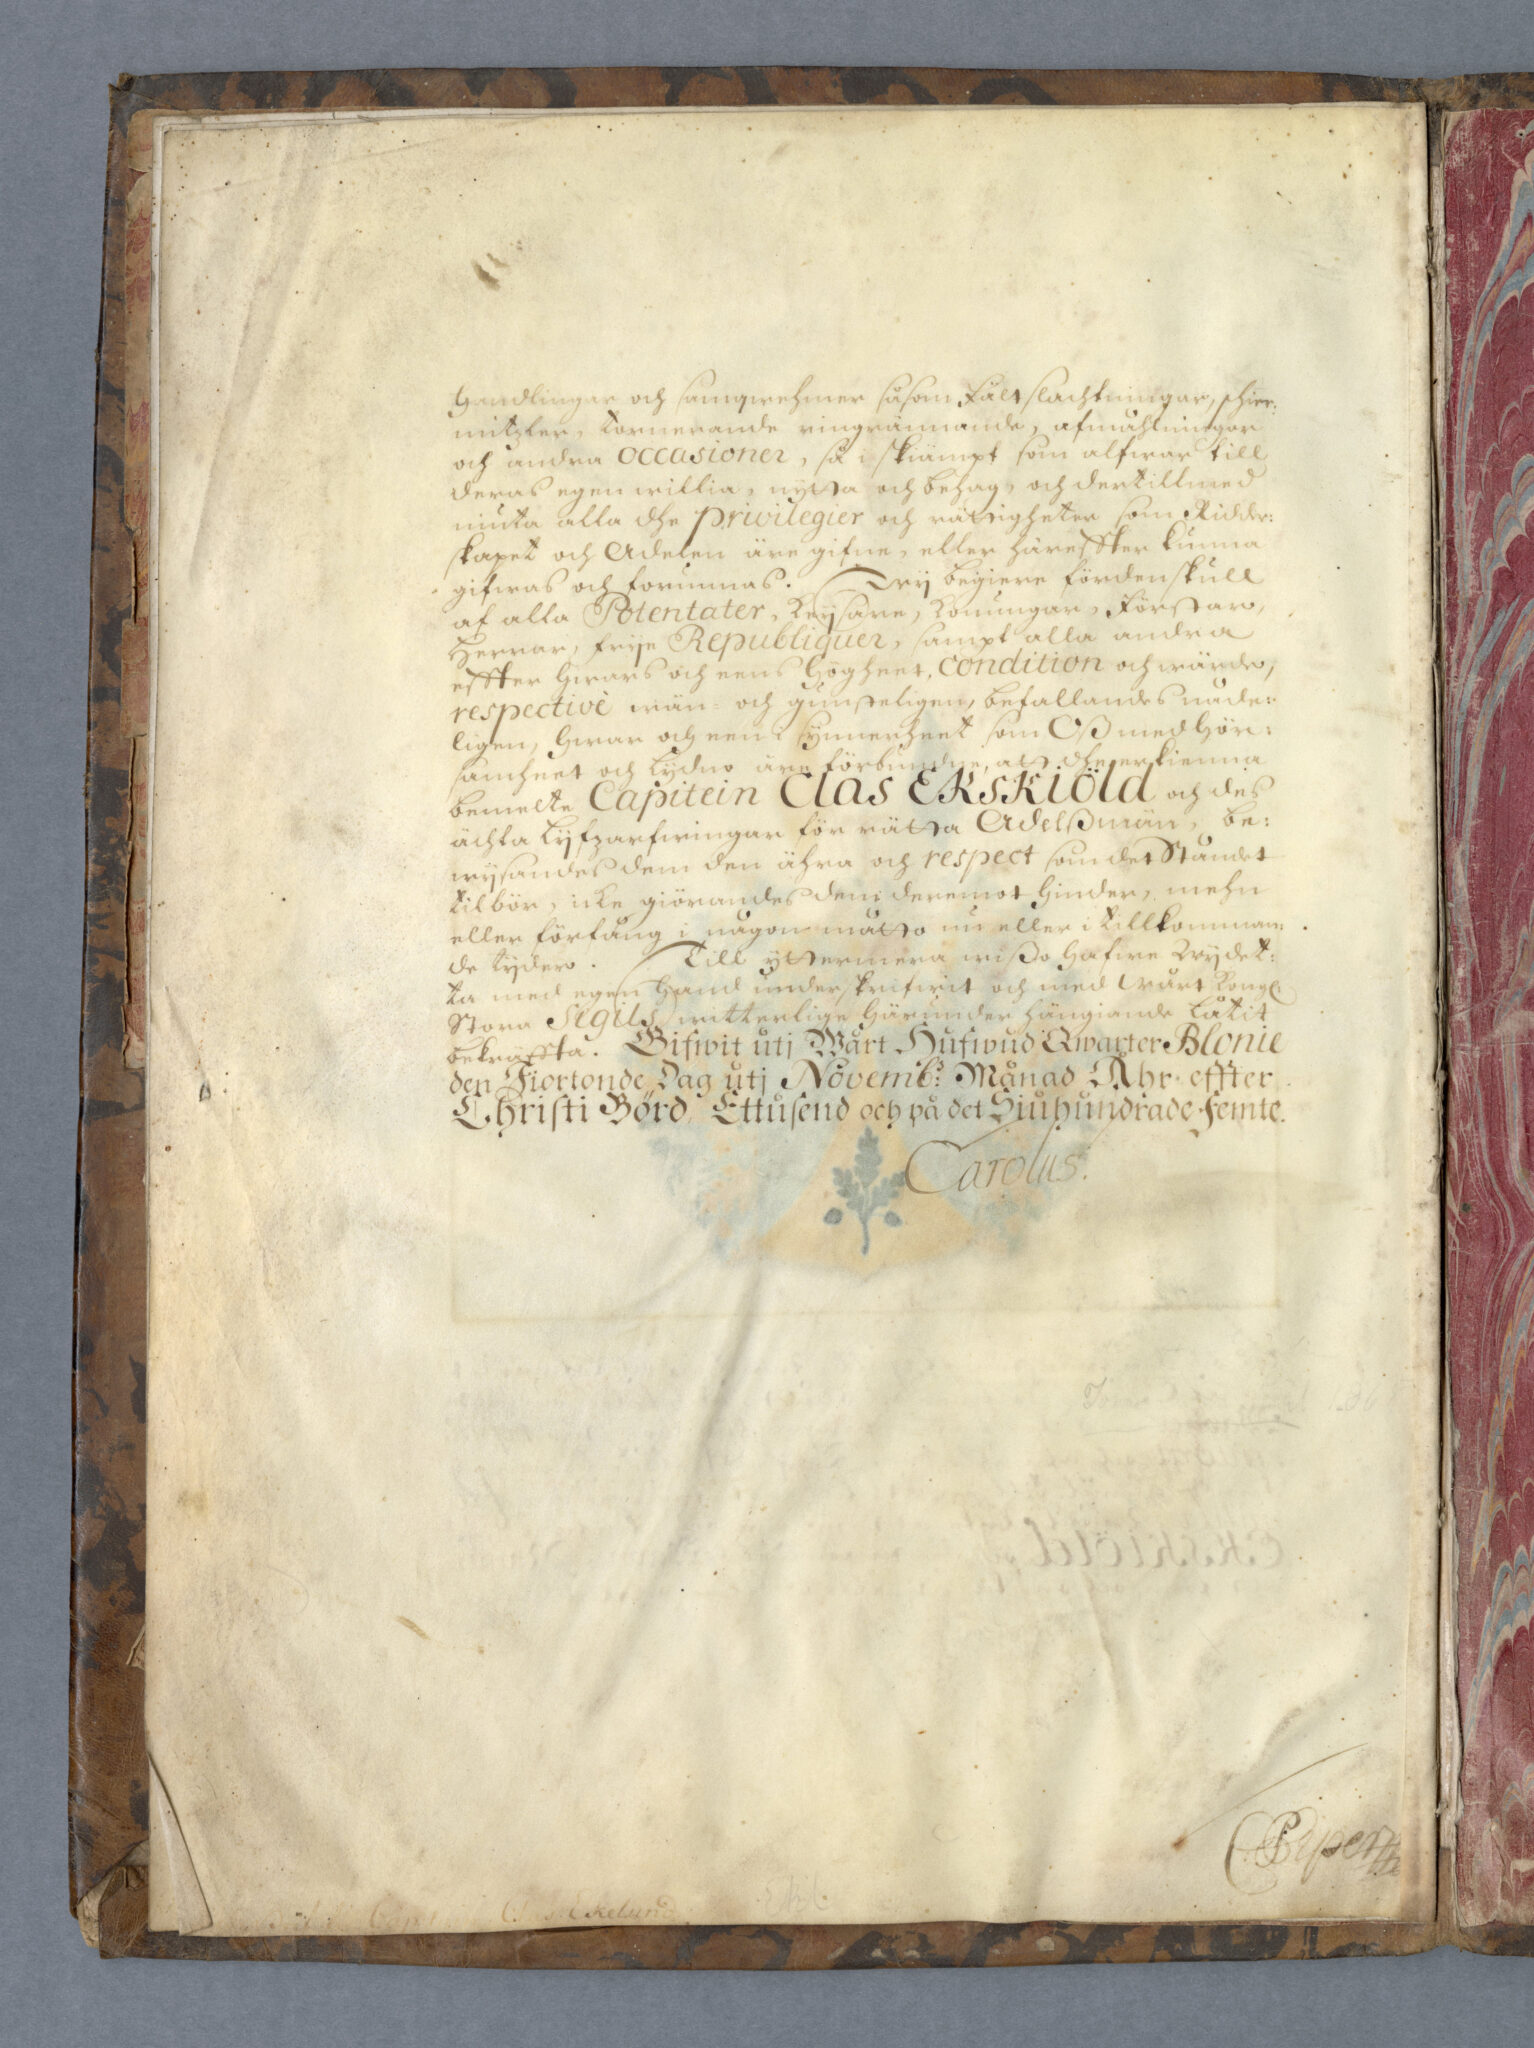 Handlingar och samqwehmer såsom Fält slachtningar, schier:
mitzler, tornerande ringrännande, afmåhlningar
och andra Occasioner, så i skiämpt som alfwar till
deras egen willia, nytta och behag, och dertillmed
niuta alla dhe Privilegier och rättigheter som Ridder:
skapet och Adelen äre gifne, eller häreffter kunna
gifwas och forunnas. Wij begiere fördenskull
af alla Potentater, Keysare, Konungar, Förstar,
Herrar, frije Republiquer, sampt alla andra
effter hwars och eens högheet, Condition och wärde,
respectivè wän- och gunsteligen, befallandes nåde:
ligen, hwar och een i synnerheet som Oß med hör:
samheet och lydno äre förbundne, att dhe erkienna
bemelte Capitein Clas Ekskiöld och des
ächta Lijfzarfwingar för rätta Adelßmän, be:
wijsandes dem den ähra och respect som det Ståndet
tilbör, icke giörandes dem deremot hinder, mehn
eller förfång i någon måtto nu eller i tillkomman:
de tyder. Till yttermera wißo hafwe Wij det:
ta med egen Hand underskrifwit och med Wårt Kongl
Stora Sigill witterlige härunder hängiande låtit
bekräffta. Gifwit utj Wårt Hufwud Qwarter Blonie
den Fiortonde Dag utj Novemb: Månad Åhr effter
Christi Börd Ettusend och på det Siuhundrade Femte.
Carolus.
Ekskiöld
C Piper
Ekelund